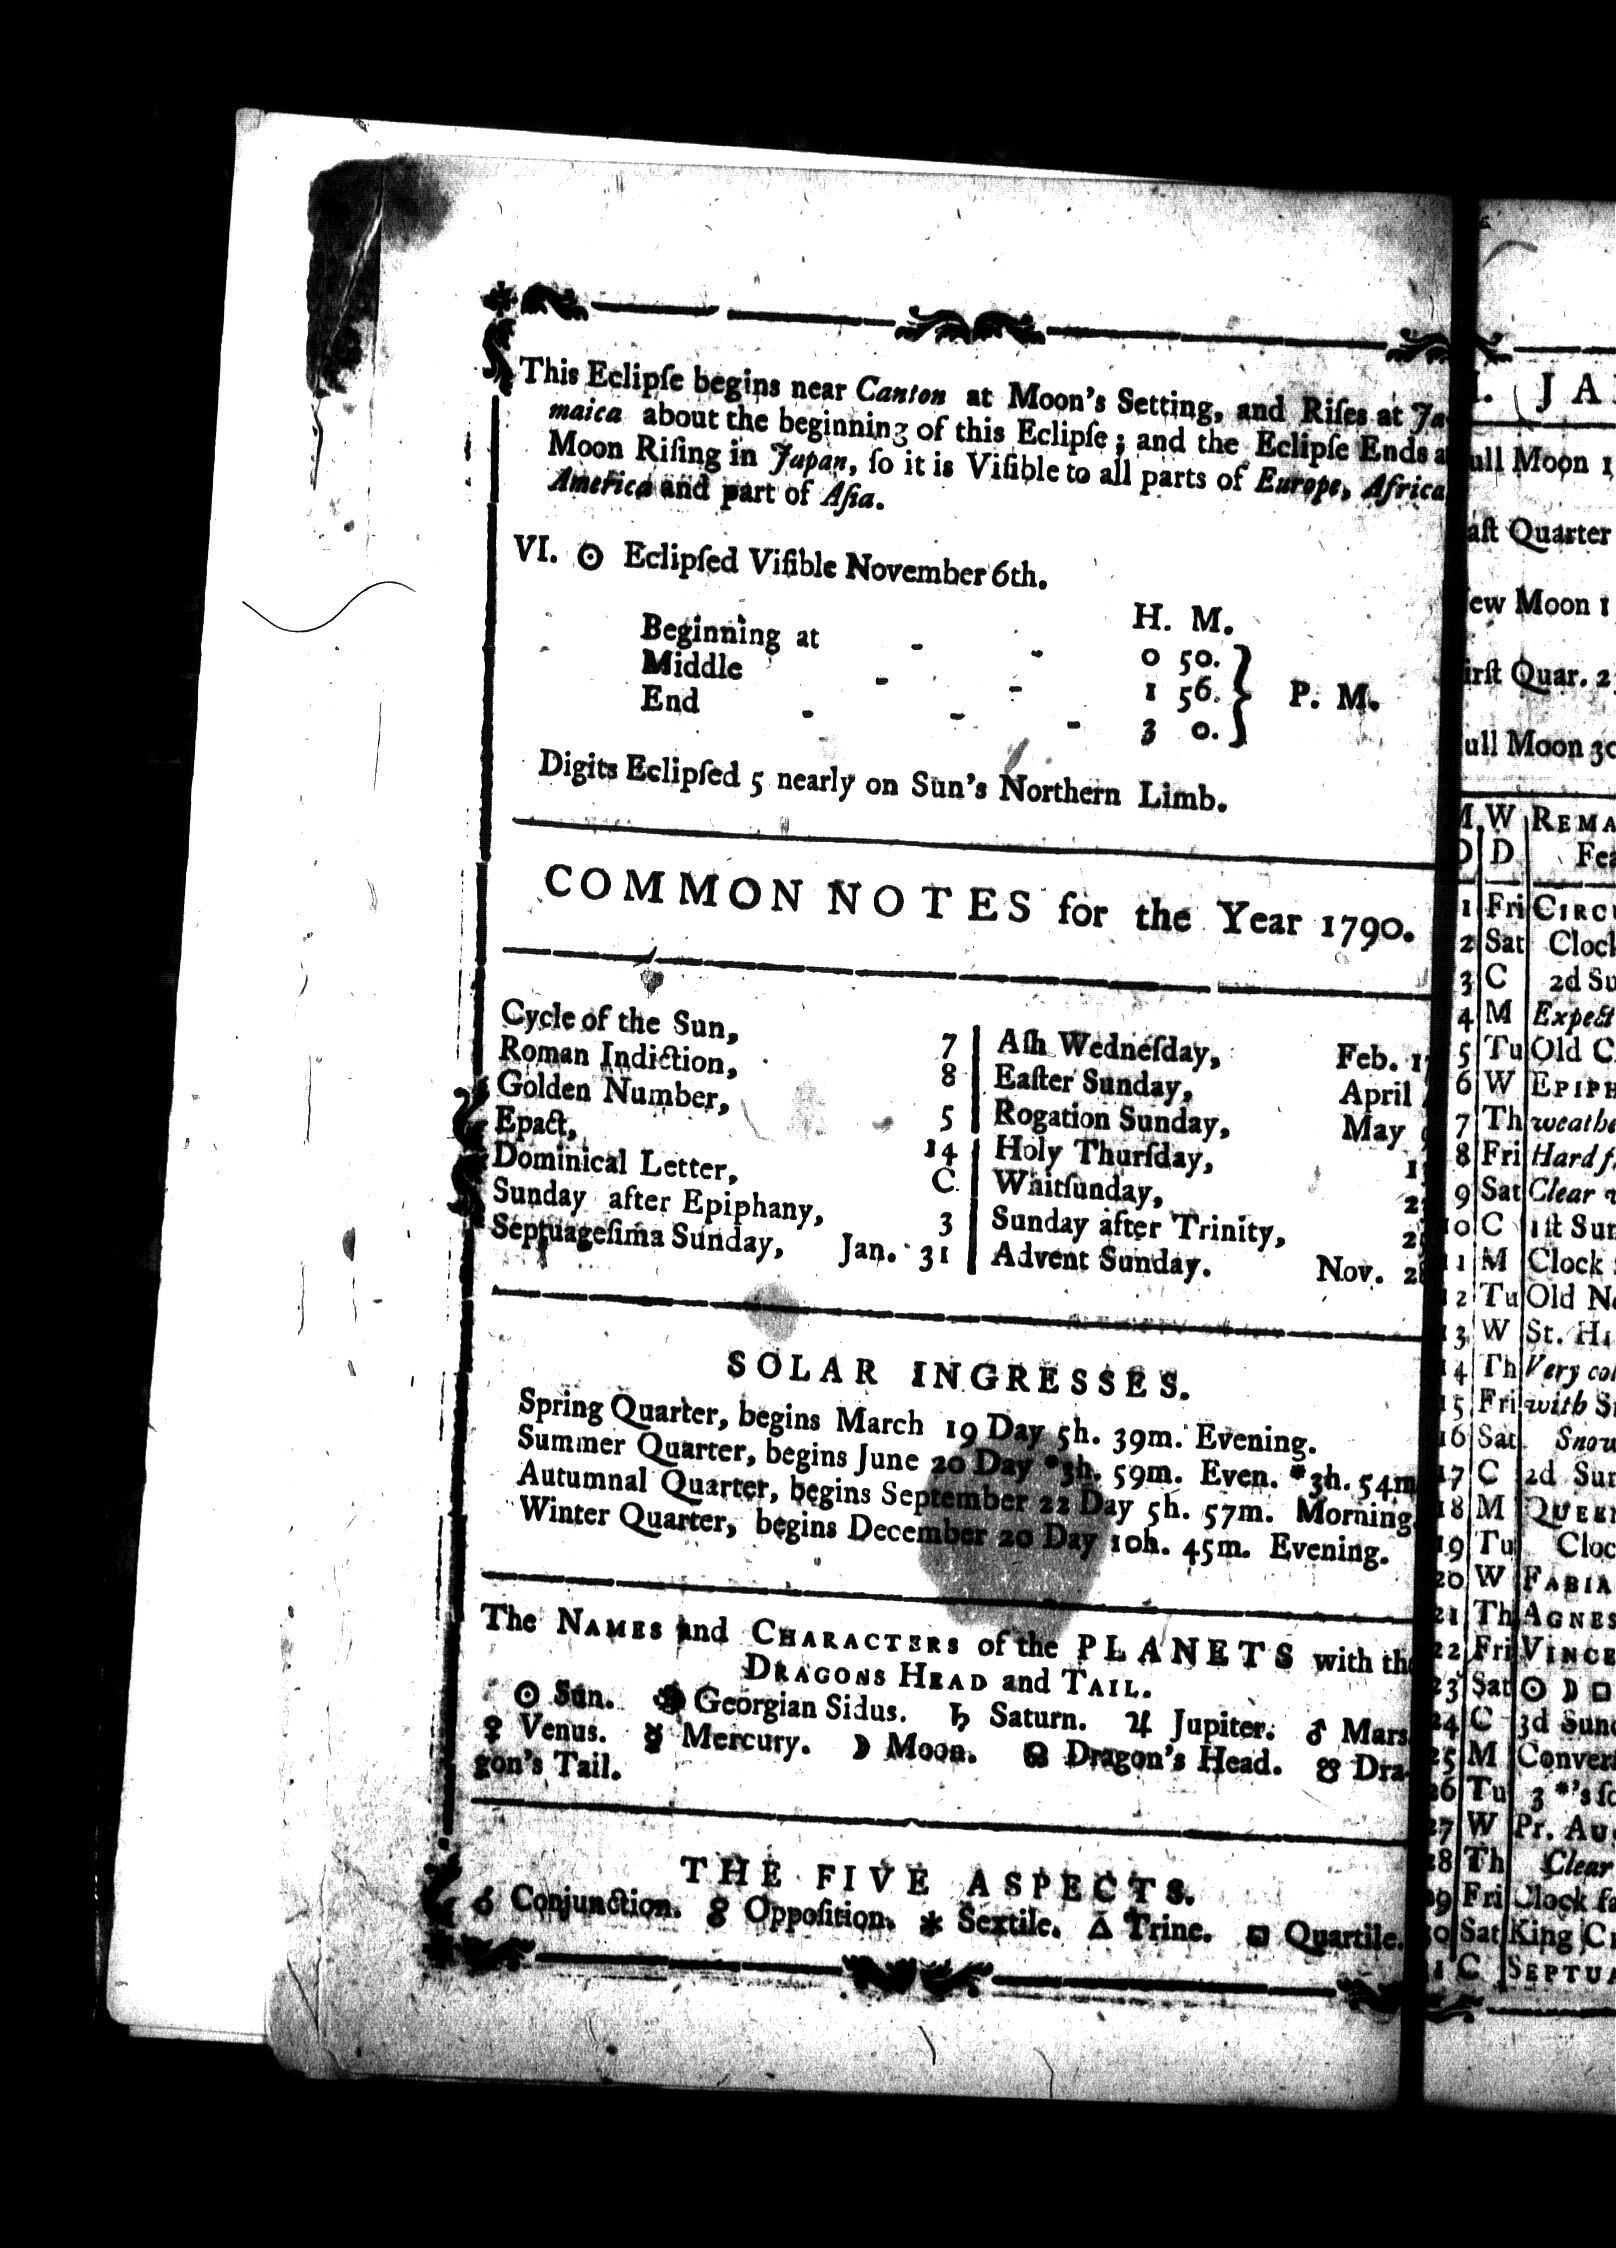 This Eclipſe begins near Canton at Moon's Setting, and Riſes at Ja-
maica about the beginning of this Eclipſe; and the Eclipſe Ends a
Moon Riſing in Japan, ſo it is Viſible to all parts of Europe, Africa
America and part of Aſia.
VI. ☉ Eclipſed Viſible November 6th.
H. M.
Beginning at - - 0 50.
Middle - - 1 56. } P. M.
End - - - 3 0.
Digits Eclipſed 5 nearly on Sun's Northern Limb.
COMMON NOTES for the Year 1790.
Cycle of the Sun, 7
Roman Indiction, 8
Golden Number, 5
Epact, 14
Dominical Letter, C
Sunday after Epiphany, 3
Septuageſima Sunday, Jan. 31
Aſh Wedneſday, Feb. 1
Eaſter Sunday, April
Rogation Sunday, May
Holy Thurſday, 1
Whitſunday, 2
Sunday after Trinity, 2
Advent Sunday. Nov. 28
SOLAR INGRESSES.
Spring Quarter, begins March 19 Day 5h. 39m. Evening.
Summer Quarter, begins June 20 Day *3h. 59m. Even. *3h. 54m
Autumnal Quarter, begins September 22 Day 5h. 57m. Morning.
Winter Quarter, begins December 20 Day 10h. 45m. Evening.
The NAMES and CHARACTERS of the PLANETS with the
DRAGONS HEAD and TAIL.
☉ Sun. Georgian Sidus. ♄ Saturn. ♃ Jupiter. ♂ Mars.
♀ Venus. ☿ Mercury. ☽ Moon. ☊ Dragon's Head. ☋ Dra-
gon's Tail.
THE FIVE ASPECTS.
☌ Conjunction. ☍ Oppoſition. ⚹ Sextile. △ Trine. □ Quartile.
I. JA
ull Moon 1
aſt Quarter
ew Moon 1
irſt Quar. 2
ull Moon 30
M W REMA
D D Fea
1 Fri CIRCU
2 Sat Clock
3 C 2d Su
4 M Expect
5 Tu Old C
6 W EPIPH
7 Th weathe
8 Fri Hard f
9 Sat Clear
10 C 1ſt Sun
11 M Clock
12 Tu Old Ne
13 W St. HI
14 Th Very col
15 Fri with S
16 Sat Snow
17 C 2d Sun
18 M QUEEN
19 Tu Cloc
20 W FABIA
21 Th AGNES
22 Fri VINCE
23 Sat ☉ ☽ □
24 C 3d Sund
25 M Conver
26 Tu 3 *'s ſo
27 W Pr. AUG
28 Th Clear
29 Fri Clock fa
30 Sat King C
31 C SEPTUA